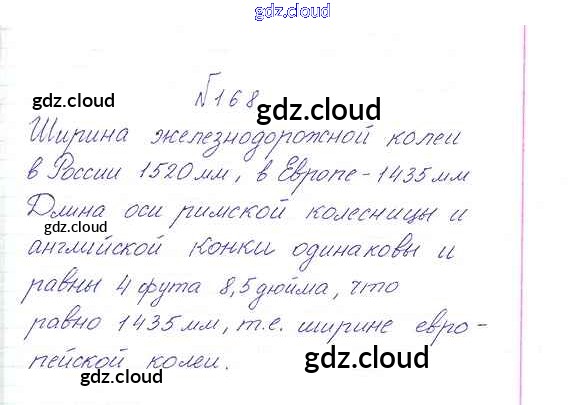 gdz.cloud
№168
gdz.cloud
gdz.cloud
Ширина железнодорожной колеи
в России 1520мм, в Европе-1435мм
Длина оси римской колесницы и
gdz.cloud
gdz.cloud
английской конки одинаковы и
равны 4 фута 8,5 дюйма, что
равно 1435мм, т.е. ширине евро-
gdz.cloud
пейской колеи.
gdz.cloud
gdz.cloud